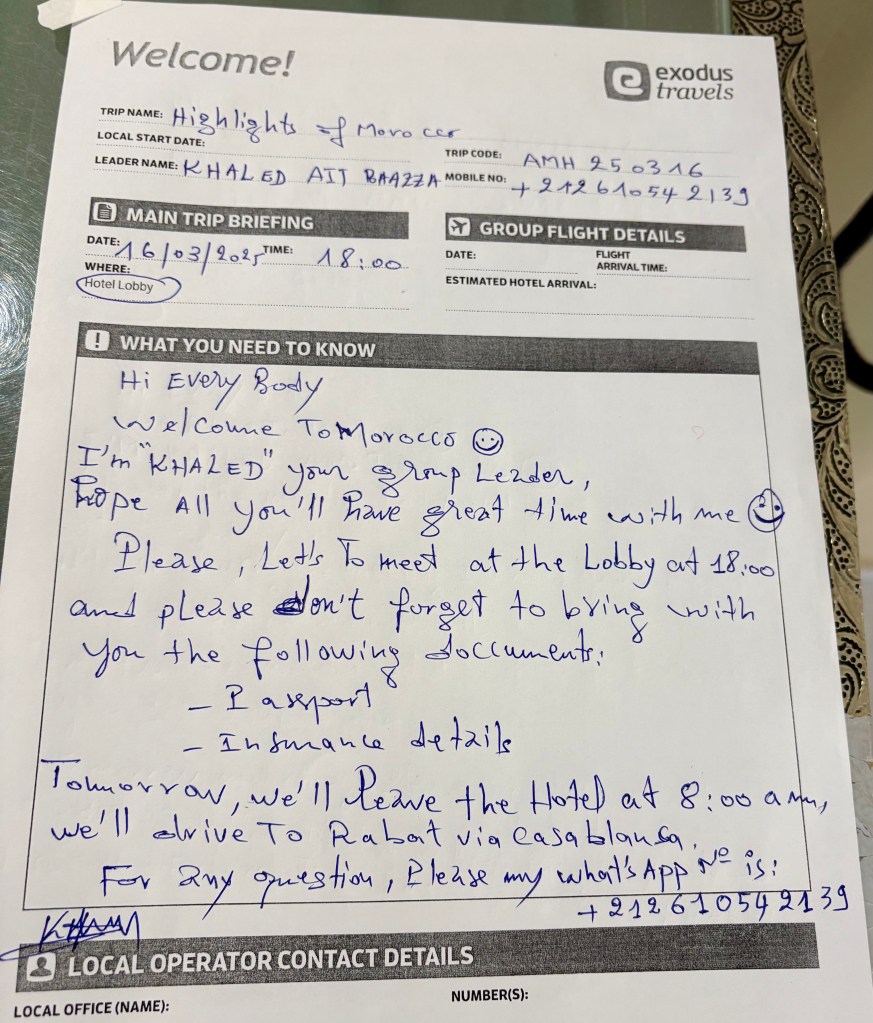 Welcome!
exodus
travels
TRIP NAME: Highlights of Morocco
LOCAL START DATE:
TRIP CODE: AMH 250316
LEADER NAME: KHALED AIT BAAZZA
MOBILE NO: +212610542139
MAIN TRIP BRIEFING
DATE: 16/03/2025 TIME: 18:00
WHERE:
Hotel Lobby
GROUP FLIGHT DETAILS
DATE:
FLIGHT
ARRIVAL TIME:
ESTIMATED HOTEL ARRIVAL:
! WHAT YOU NEED TO KNOW
Hi Every Body
Welcome To Morocco
I'm "KHALED" your group Leader,
hope All you'll have great time with me
Please, Let's To meet at the Lobby at 18:00
and please don't forget to bring with
you the following doccuments:
- Passport
- Insurance details
Tomorrow, we'll leave the Hotel at 8:00 am,
we'll drive To Rabat via Casablanca.
For any question, Please my what's App N° is:
+212610542139
LOCAL OPERATOR CONTACT DETAILS
LOCAL OFFICE (NAME):
NUMBER(S):